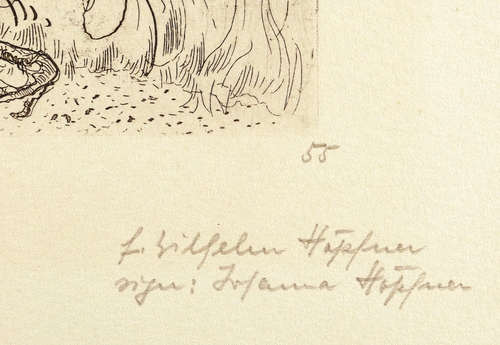 55
f. Wilhelm Höpfner
sign: Johanna Höpfner